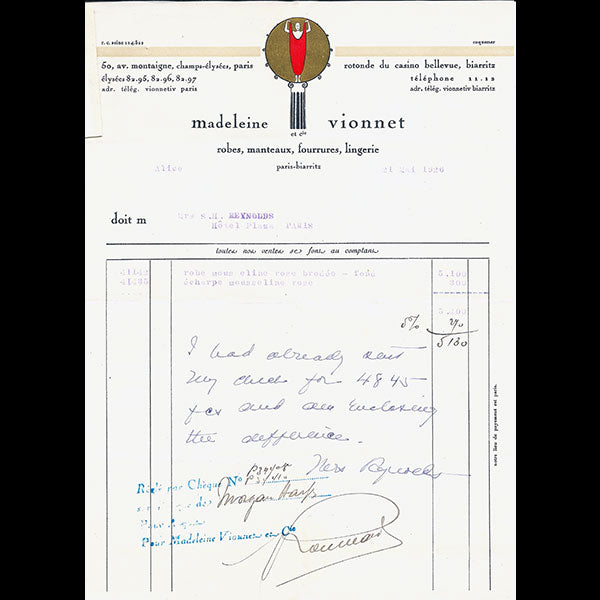 r. c. seine 124.812
coquemer
50, av. montaigne, champs-élysées, paris
élysées 82.95, 82.96, 82.97
adr. télég. vionnetiv paris
rotonde du casino bellevue, biarritz
téléphone 11.12
adr. télég. vionnetiv biarritz
madeleine et cie vionnet
robes, manteaux, fourrures, lingerie
paris-biarritz
Alice
21 Mai 1926
doit m Mrs S.M. REYNOLDS
Hôtel Plaza PARIS
toutes nos ventes se font au comptant
41142 robe mousseline rose brodée - fond 5.100
écharpe mousseline rose 300
5.400
5% 270
5130
I had already sent
my check for 4845
fcs and am enclosing
the difference.
Mrs Reynolds
Réglé par Chèque No
Morgan Harjes
Pour Madeleine Vionnet et Cie
notre lieu de payement est paris.